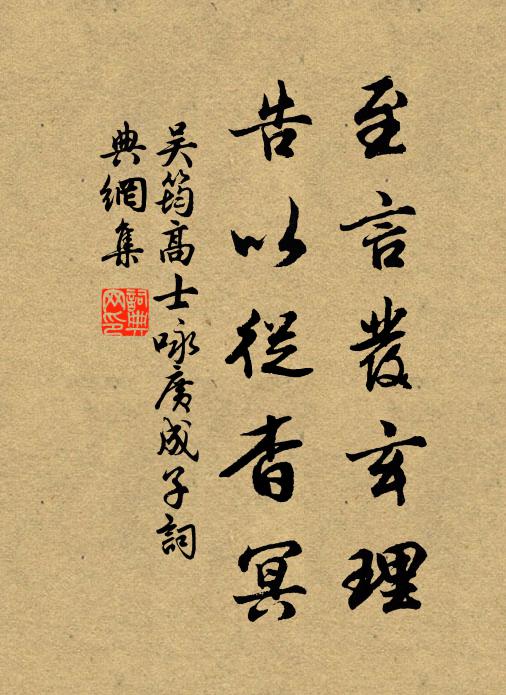 至言發玄理
告以從杳冥
吳筠高士咏廣成子詞
典網集
詞典網印